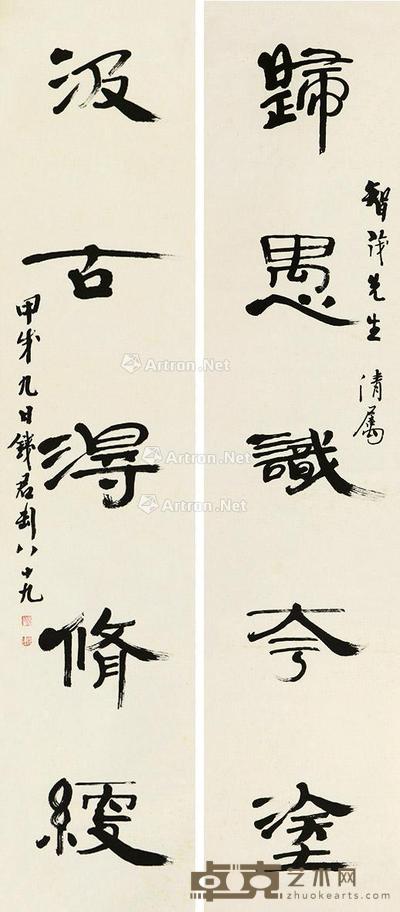 歸愚識夸塗
智茂先生 清屬
汲古得脩綆
甲戌九日錢君匋八十九
Artron.Net
Artron.Net
Artron.Net
Artron.Net
卓克艺术网
www.zhuokearts.com